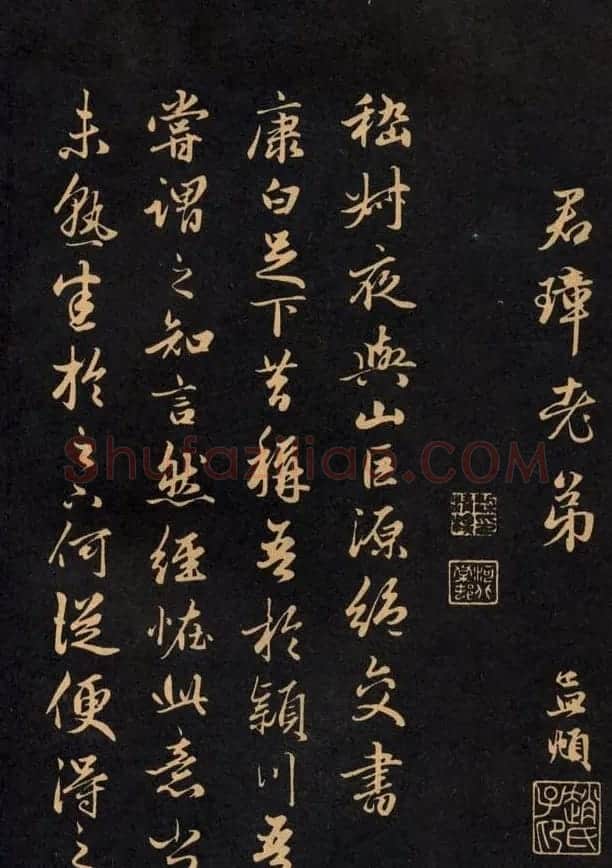 君璋老弟
孟頫
趙氏子昂
嵇叔夜與山巨源絕交書
康白足下昔稱吾於潁川吾
嘗謂之知言然經怪此意尚
未熟悉於足下何從便得之
Shufaziliao.COM